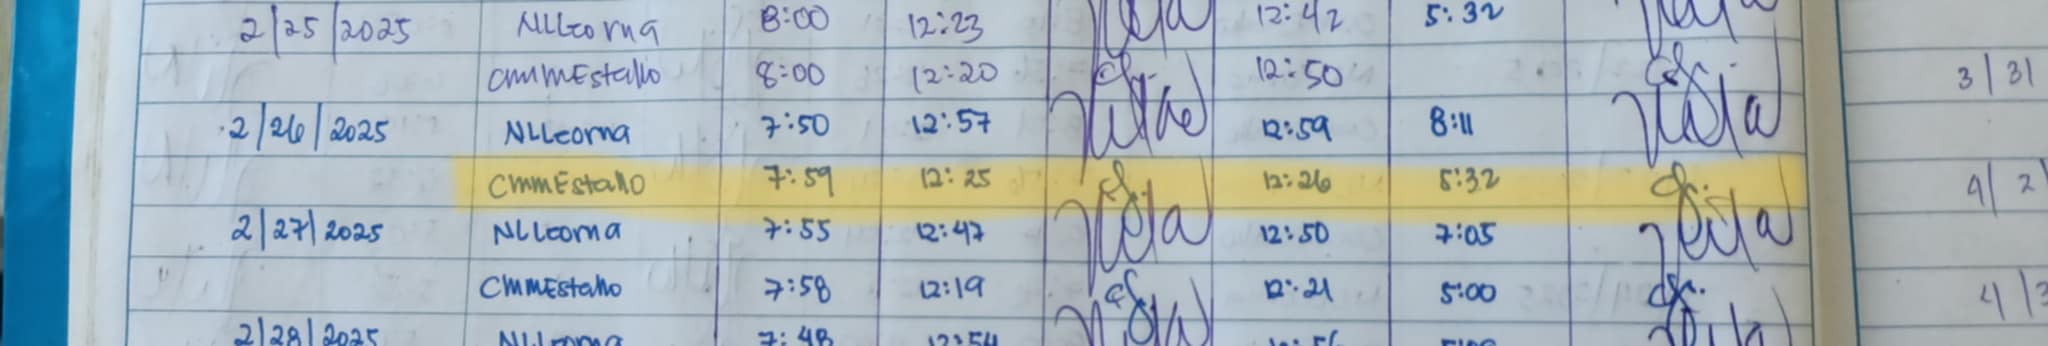 2/25/2025 NLLeorna 8:00 12:23 12:42 5:32
CMMEstallo 8:00 12:20 12:50
3/31
2/26/2025 NLLeorna 7:50 12:57 12:59 8:11
CMMEstallo 7:59 12:25 12:26 5:32
2/27/2025 NLLeorna 7:55 12:47 12:50 7:05
CMMEstallo 7:58 12:19 12:21 5:00
2/28/2025 NLLeorna 7:48 12:54